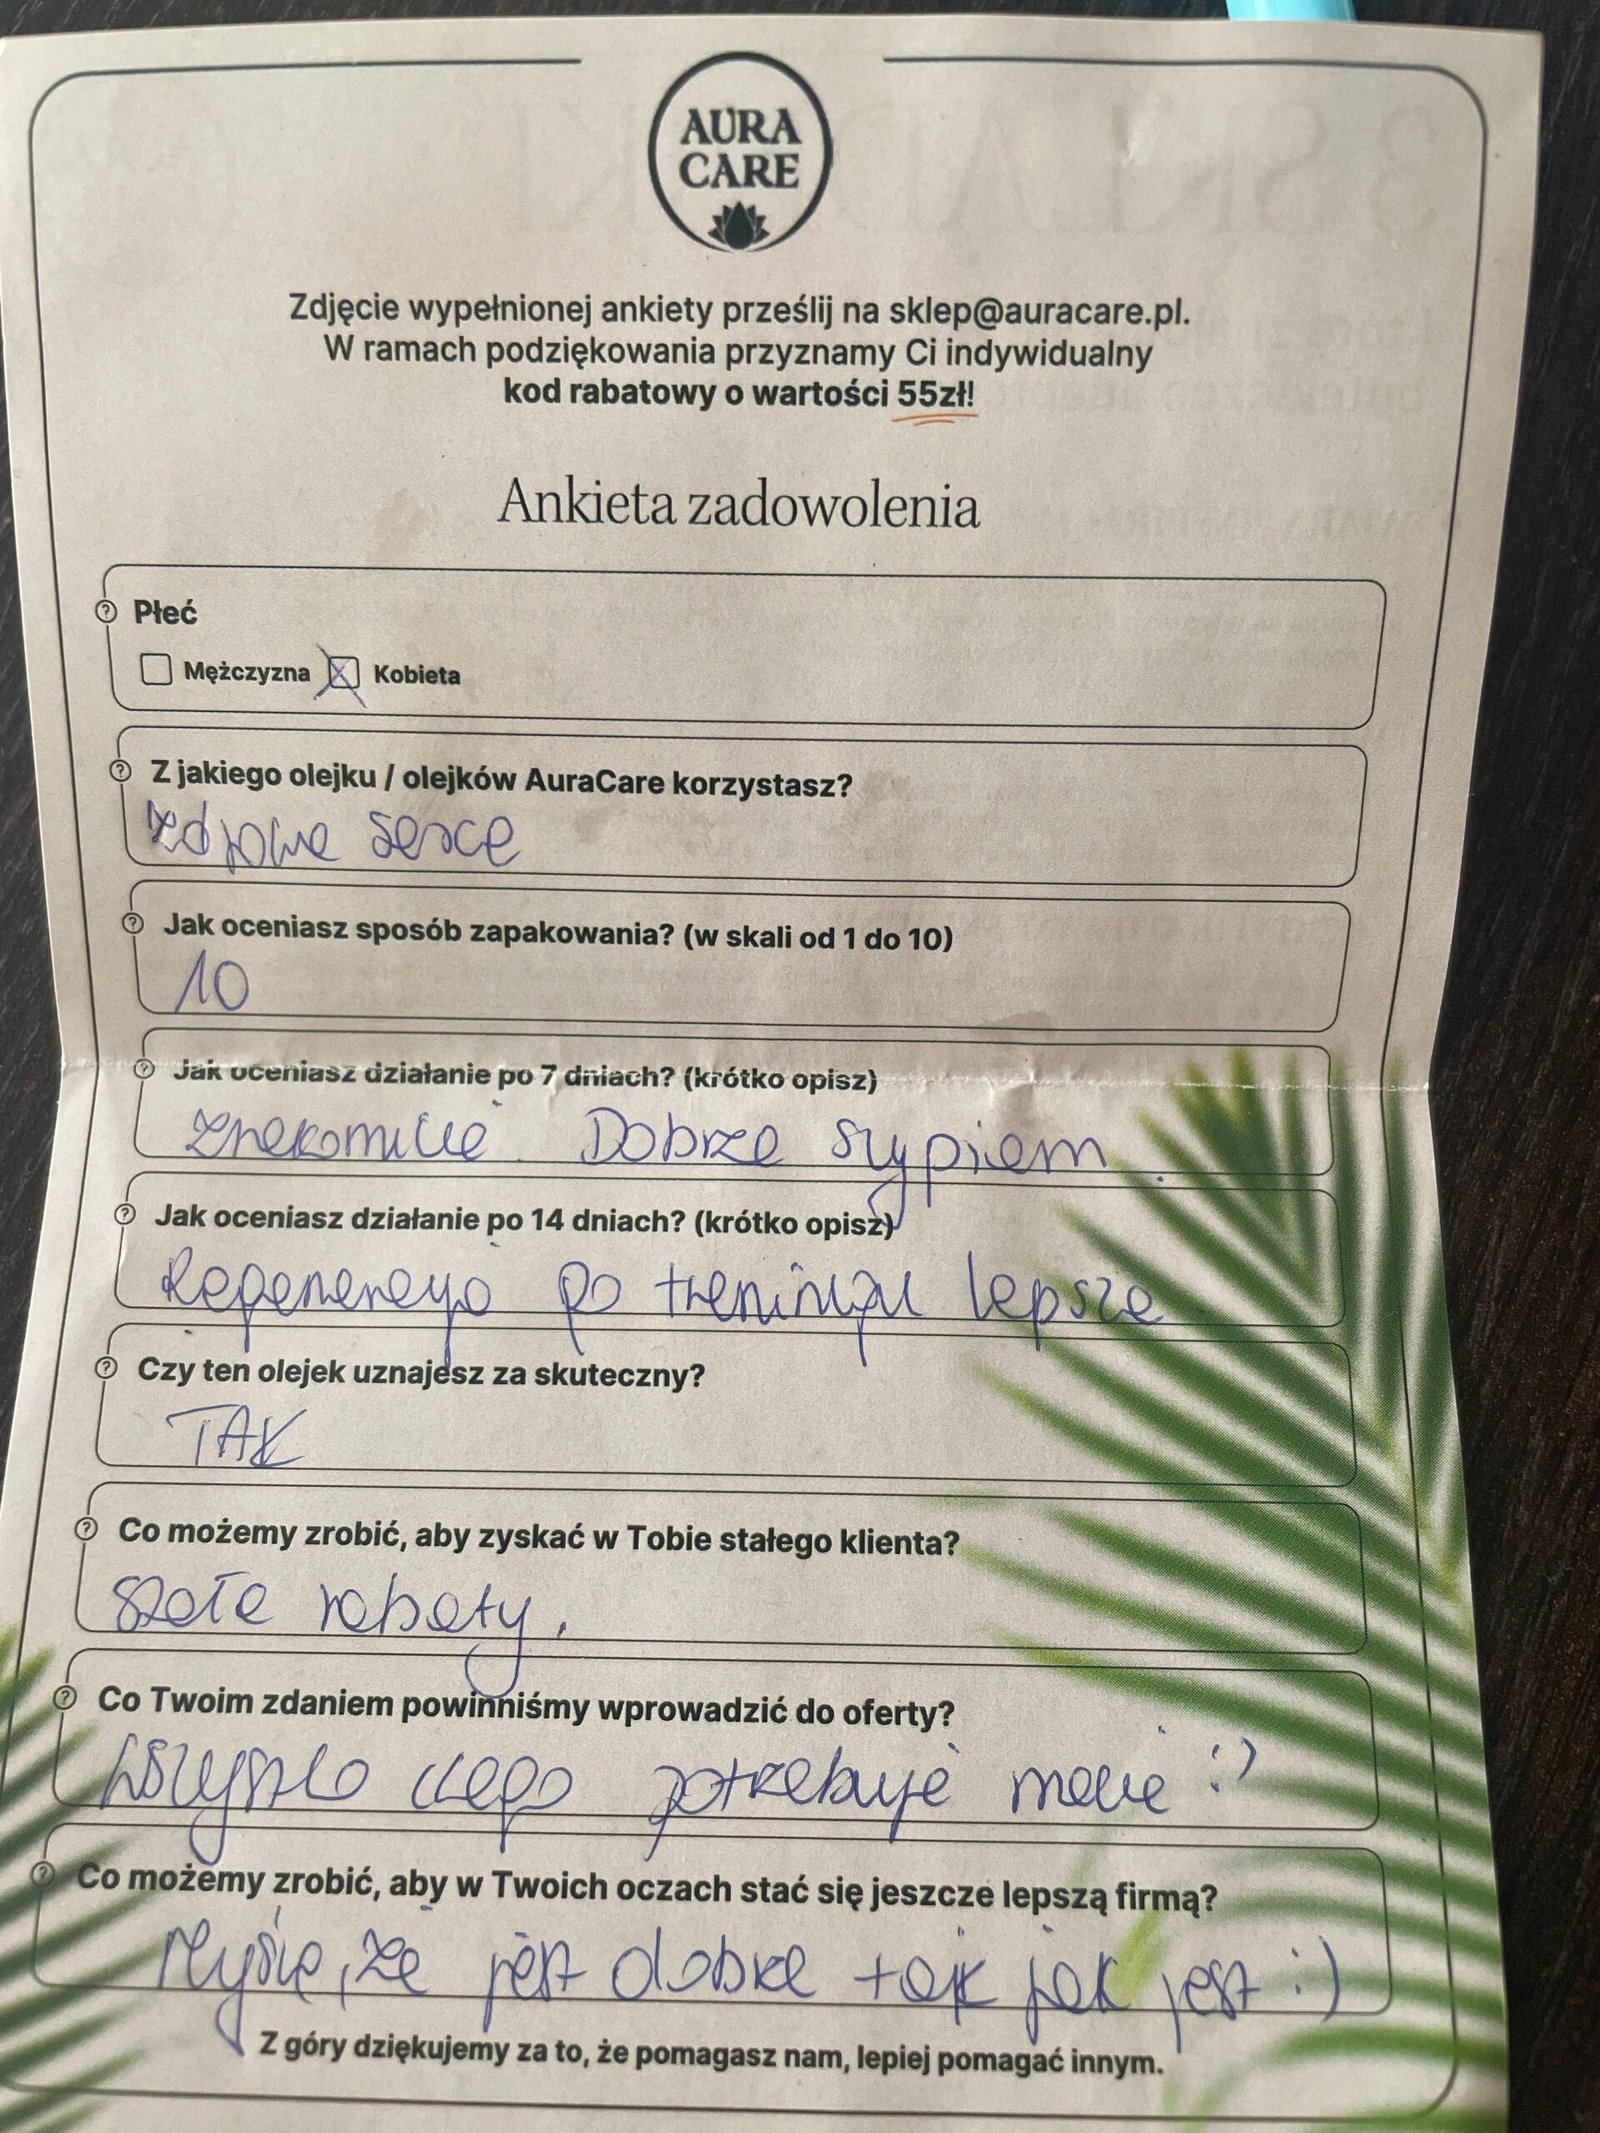 AURA
CARE
Zdjęcie wypełnionej ankiety prześlij na sklep@auracare.pl.
W ramach podziękowania przyznamy Ci indywidualny
kod rabatowy o wartości 55zł!
Ankieta zadowolenia
Płeć
Mężczyzna Kobieta
Z jakiego olejku / olejków AuraCare korzystasz?
zdrowe serce
Jak oceniasz sposób zapakowania? (w skali od 1 do 10)
10
Jak oceniasz działanie po 7 dniach? (krótko opisz)
Znakomicie. Dobrze sypiam.
Jak oceniasz działanie po 14 dniach? (krótko opisz)
Regeneracja po treningu lepsza
Czy ten olejek uznajesz za skuteczny?
TAK
Co możemy zrobić, aby zyskać w Tobie stałego klienta?
stałe rabaty.
Co Twoim zdaniem powinniśmy wprowadzić do oferty?
Wszystko czego potrzebuje macie :)
Co możemy zrobić, aby w Twoich oczach stać się jeszcze lepszą firmą?
Myślę, że jest dobrze tak jak jest :)
Z góry dziękujemy za to, że pomagasz nam, lepiej pomagać innym.